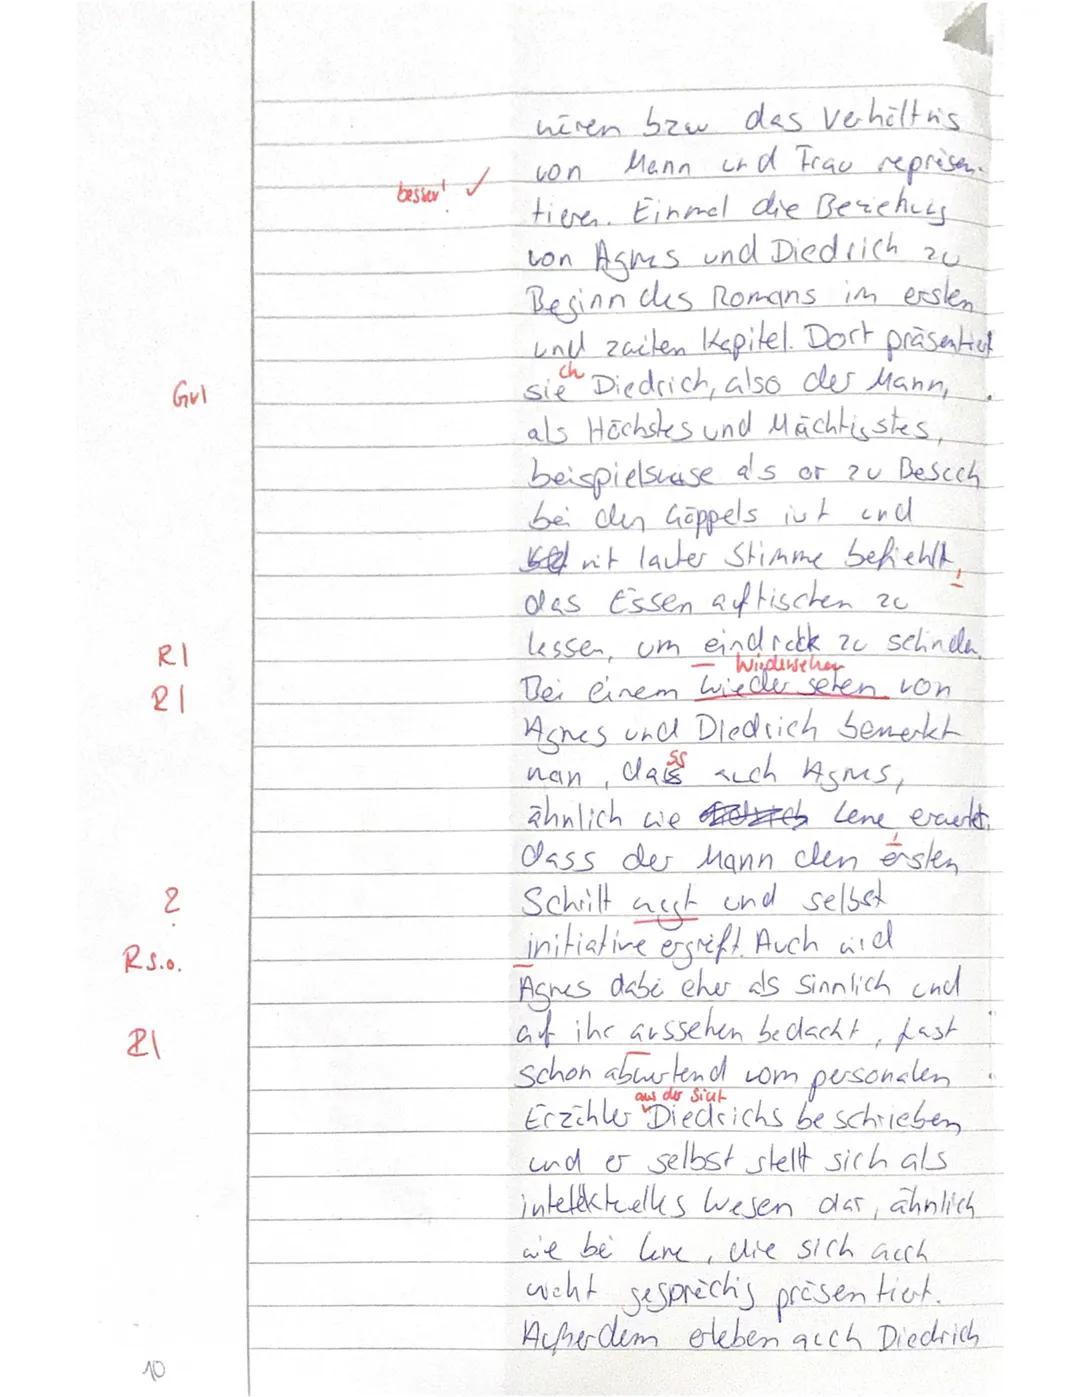 nieren bzw das Verhältnis
von Mann und Frau repräsen-
besser! ✓
tieren. Einmal die Beziehung
von Agnes und Diedrich zu
Beginn des Romans im ersten
und zweiten Kapitel. Dort präsentiert
ch
Gr1 sie Diedrich, also der Mann,
als Höchstes und Mächtigstes,
beispielsweise als er zu Besuch
bei den Göppels ist und
mit lauter Stimme befiehlt,
das Essen auftischen zu
R1 lassen, um eindruck zu schinden.
Wiedersehen
R1 Bei einem wieder sehen von
Agnes und Diedrich bemerkt
ss
man, dass auch Agnes,
ähnlich wie Lene erwartet,
dass der Mann den ersten
? Schritt und selbst
R s.o. initiative ergreift. Auch wird
Agnes dabei eher als sinnlich und
R1 auf ihr aussehen bedacht, fast
schon abwertend vom personalen
aus der Sicht
Erzähler Diedrichs beschrieben
und er selbst stellt sich als
intelektuelles Wesen dar, ähnlich
wie bei Lene, die sich auch
nicht gesprächig präsentiert.
Außerdem erleben auch Diedrich
10